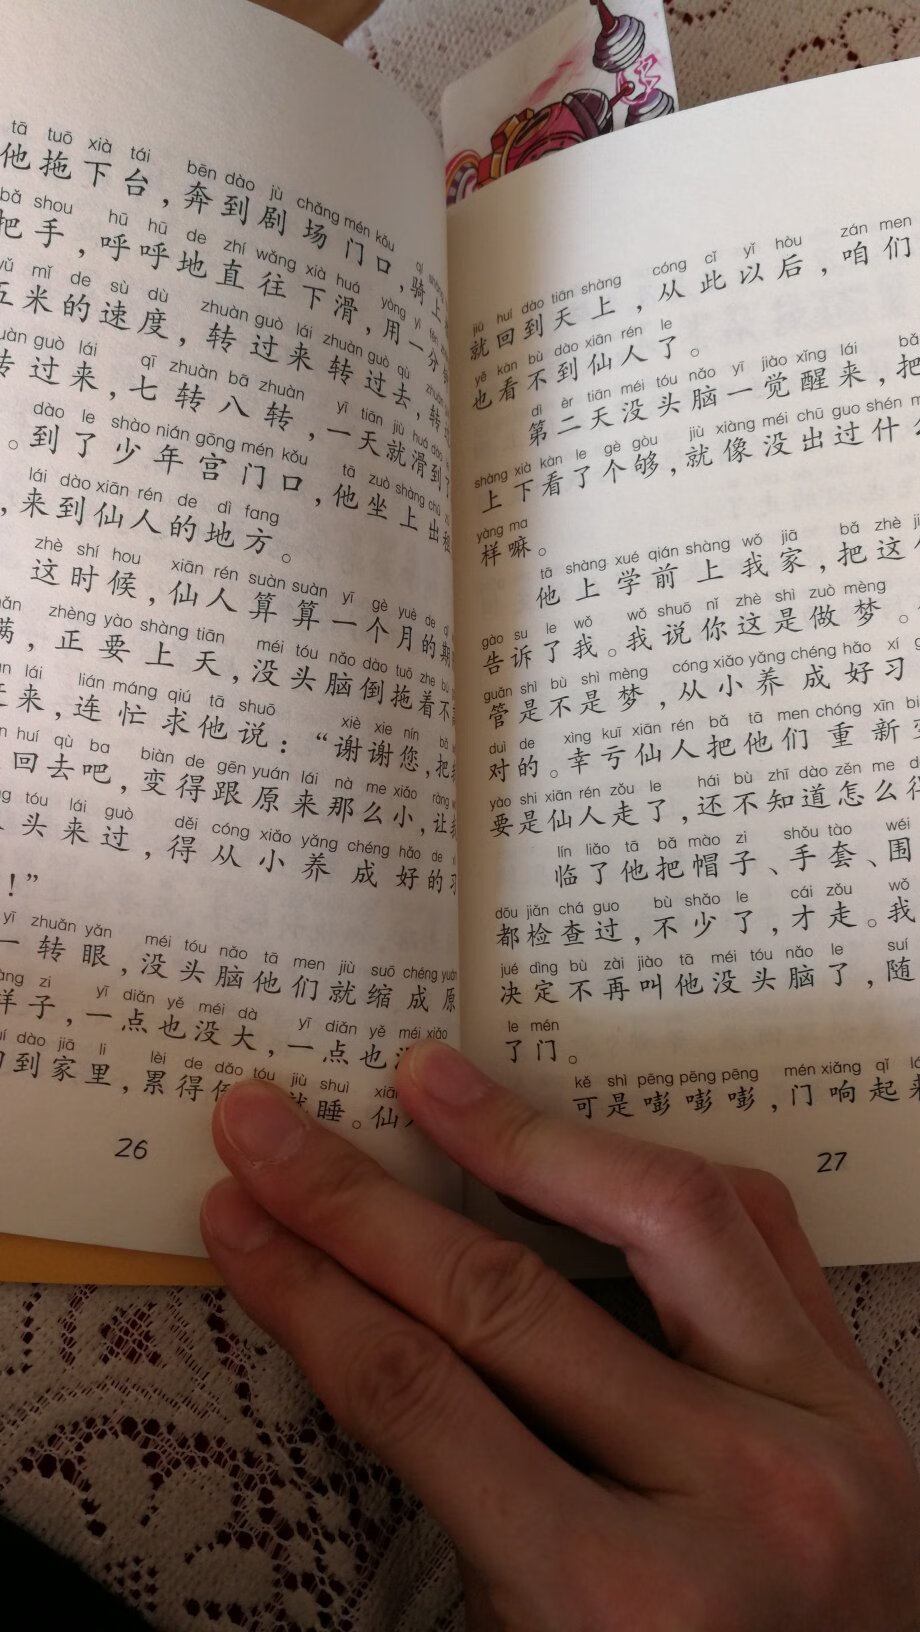 tā tuō xià tái bēn dào jù chǎng mén kǒu
他拖下台，奔到剧场门口，骑上
bǎ shou hū hū de zhí wǎng xià huá yòng yì
把手，呼呼地直往下滑，用一分
mǐ de sù dù zhuàn guò lái zhuàn guò qù
五米的速度，转过来转过去，转
guò lái qī zhuàn bā zhuàn yī tiān jiù huá dào
转过来，七转八转，一天就滑到了
dào le shào nián gōng mén kǒu tā zuò shàng chū
。到了少年宫门口，他坐上出租
lái dào xiān rén de dì fang
，来到仙人的地方。
zhè shí hou xiān rén suàn suàn yī gè yuè de
这时候，仙人算算一个月的期
zhèng yào shàng tiān méi tóu nǎo dào tuō zhe bù
满，正要上天，没头脑倒拖着不
lái lián máng qiú tā shuō xiè xie nín bǎ
来，连忙求他说：“谢谢您，把
huí qù ba biàn de gēn yuán lái nà me xiǎo ràng
回去吧，变得跟原来那么小，让
tóu lái guò děi cóng xiǎo yǎng chéng hǎo de
头来过，得从小养成好的
！”
yī zhuǎn yǎn méi tóu nǎo tā men jiù suō chéng yuán
一转眼，没头脑他们就缩成原
zi yī diǎn yě méi dà yī diǎn yě méi xiǎo
样子，一点也没大，一点也
dào jiā li lèi de dǎo tóu jiù shuì
到家里，累得倒 就睡。仙
26
jiù huí dào tiān shàng cóng cǐ yǐ hòu zán men
就回到天上，从此以后，咱们
yě kàn bù dào xiān rén le
也看不到仙人了。
dì èr tiān méi tóu nǎo yī jiào xǐng lái bǎ
第二天没头脑一觉醒来，把
shàng xià kàn le gè gòu jiù xiàng méi chū guo shén
上下看了个够，就像没出过什么
yàng ma
样嘛。
tā shàng xué qián shàng wǒ jiā bǎ zhè
他上学前上我家，把这
gào su le wǒ wǒ shuō nǐ zhè shì zuò mèng
告诉了我。我说你这是做梦。
guǎn shì bù shì mèng cóng xiǎo yǎng chéng hǎo xí
管是不是梦，从小养成好习
duì de xìng kuī xiān rén bǎ tā men chóng xīn
对的。幸亏仙人把他们重新
yào shi xiān rén zǒu le hái bù zhī dào zěn me
要是仙人走了，还不知道怎么得
lín liǎo tā bǎ mào zi shǒu tào wéi
临了他把帽子、手套、围
dōu jiǎn chá guo bù shǎo le cái zǒu wǒ
都检查过，不少了，才走。我
jué dìng bù zài jiào tā méi tóu nǎo le suí
决定不再叫他没头脑了，随
le mén
了门。
kě shì pēng pēng pēng mén xiǎng qǐ
可是嘭嘭嘭，门响起来
27